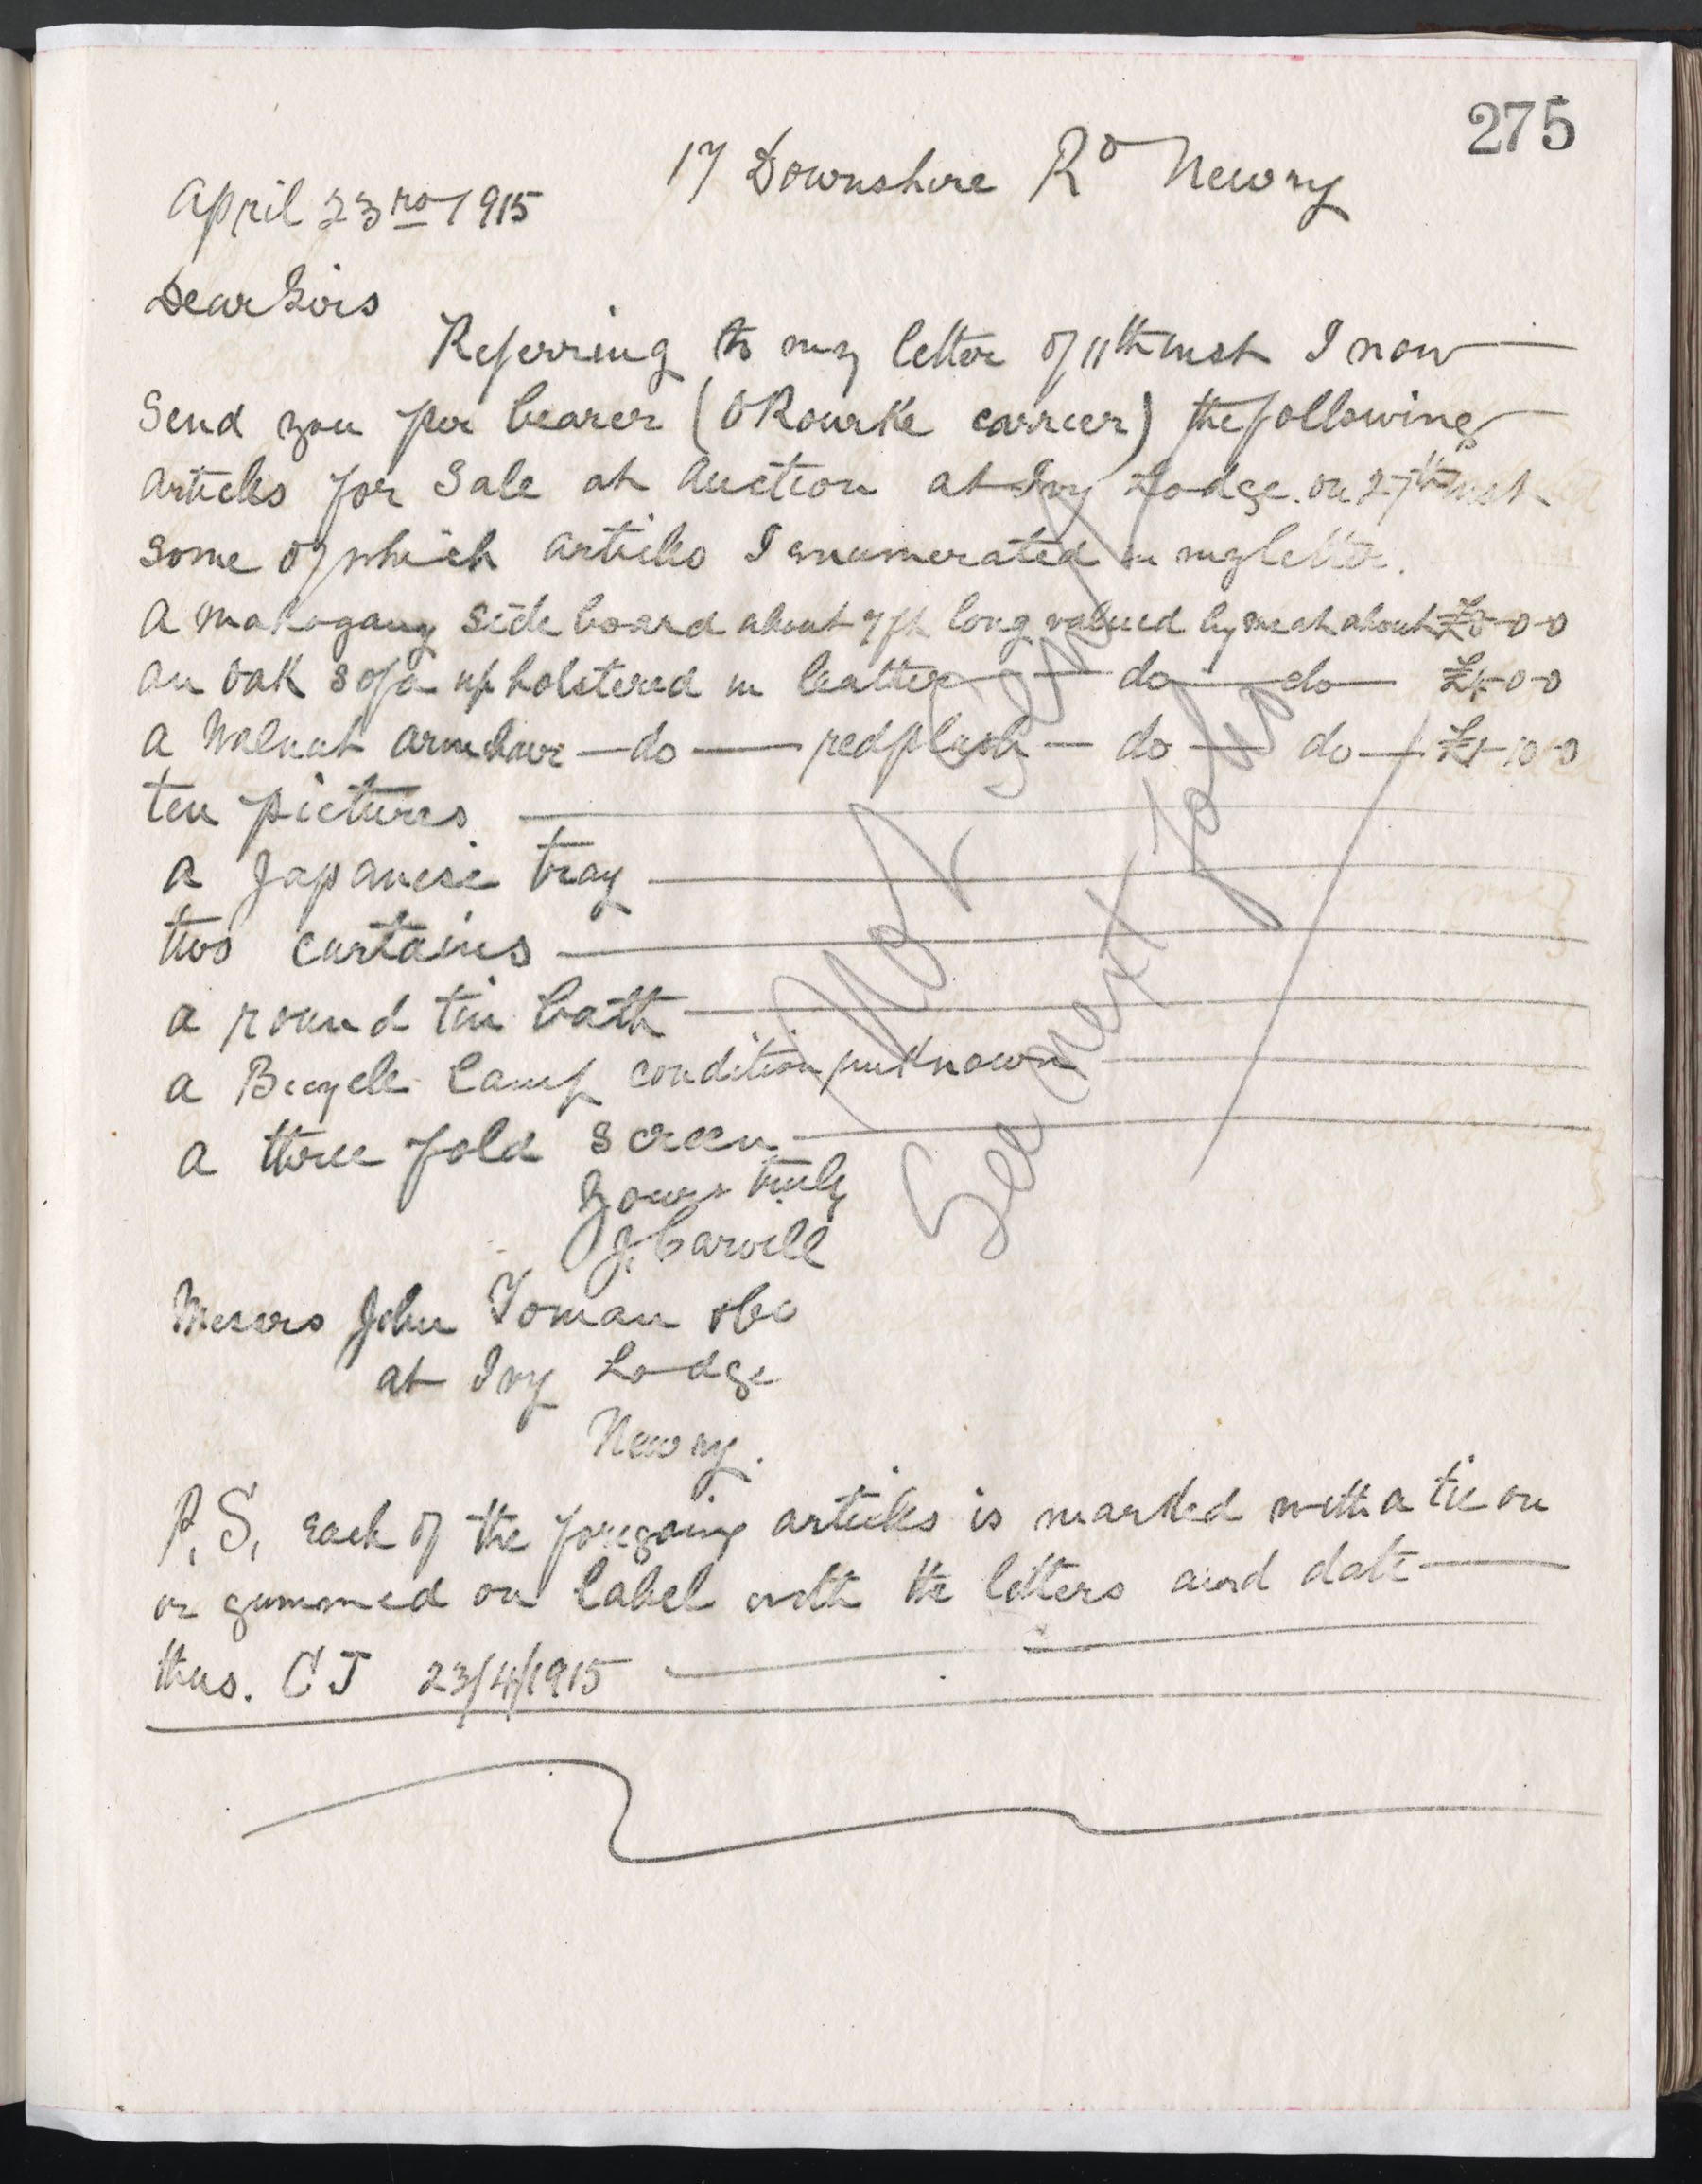 275
17 Downshire Rd Newry
April 23rd 1915
Dear Sirs
Referring to my letter of 11th inst I now
Send you per bearer (O Rourke carrier) the following
articles for Sale at Auction at Ivy Lodge on 27th inst
some of which articles I enumerated in my letter.
A mahogany side board about 7ft long valued by me at about £8-0-0
an oak sofa upholstered in leather do do £4-0-0
a Walnut armchair do red plush do do £1-10-0
ten pictures
a Japanese tray
two curtains
a round tin bath
a Bicycle lamp condition unknown
a three fold screen
Yours truly
J. Carvill
Messrs John Toman & Co
at Ivy Lodge
Newry.
P.S. each of the foregoing articles is marked with a tie on
or gummed on label with the letters and date
thus. C J 23/4/1915
Not Sent
See next folio